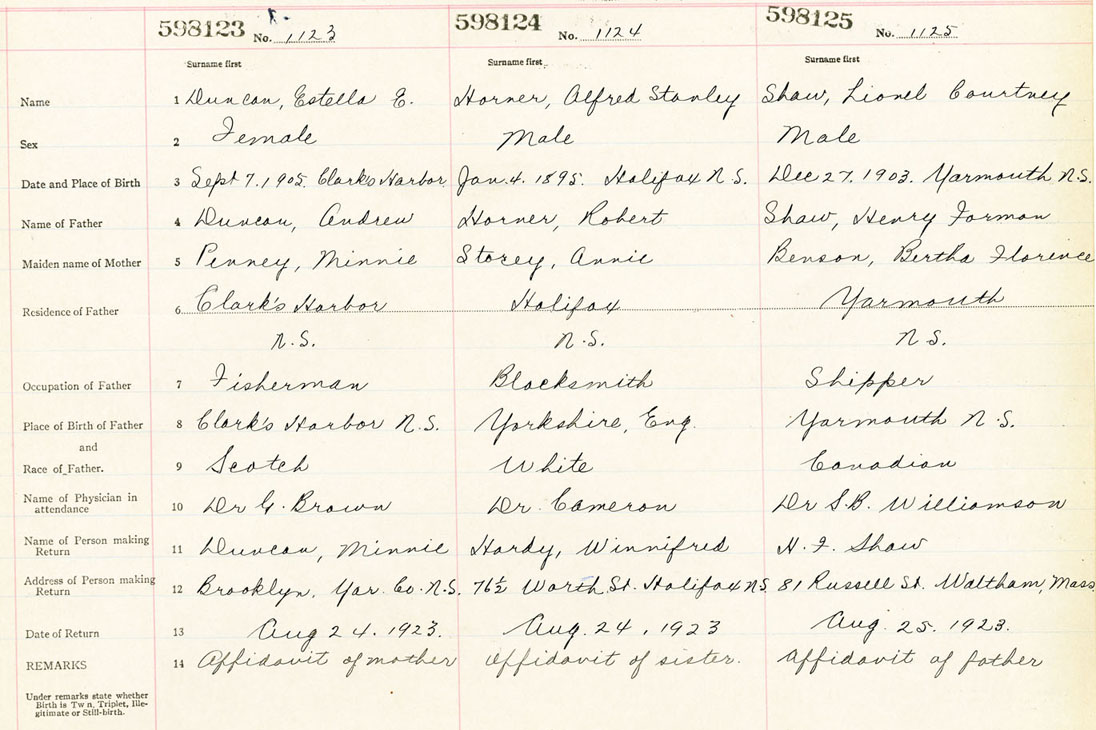 598123 No. 1123 598124 No. 1124 598125 No. 1125
Surname first Surname first Surname first
Name 1 Duncan, Estella E. Horner, Alfred Stanley Shaw, Lionel Courtney
Sex 2 Female Male Male
Date and Place of Birth 3 Sept 7. 1905. Clark's Harbor Jan. 4. 1895. Halifax N.S. Dec 27. 1903. Yarmouth N.S.
Name of Father 4 Duncan, Andrew Horner, Robert Shaw, Henry Forman
Maiden name of Mother 5 Penney, Minnie Storey, Annie Benson, Bertha Florence
Residence of Father 6 Clark's Harbor Halifax Yarmouth
N.S. N.S. N.S.
Occupation of Father 7 Fisherman Blacksmith Shipper
Place of Birth of Father 8 Clark's Harbor N.S. Yorkshire, Eng. Yarmouth N.S.
and
Race of Father. 9 Scotch White Canadian
Name of Physician in
attendance 10 Dr G. Brown Dr. Cameron Dr S.B. Williamson
Name of Person making
Return 11 Duncan, Minnie Hardy, Winnifred H. F. Shaw
Address of Person making
Return 12 Brooklyn, Yar. Co. N.S. 76½ Worth St. Halifax N.S. 81 Russell St. Waltham, Mass
Date of Return 13 Aug 24. 1923. Aug. 24, 1923 Aug. 25. 1923.
REMARKS 14 Affidavit of mother Affidavit of sister. Affidavit of father
Under remarks state whether
Birth is Tw n, Triplet, Ille-
gitimate or Still-birth.